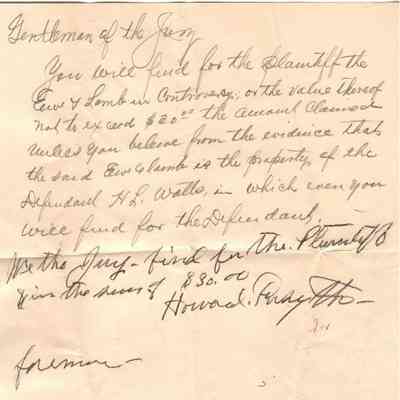 Gentleman of the Jury
You will find for the Plaintiff the
Ewe & Lamb in Controversy, or the value thereof
not to exceed $30.00 the amount Claimed
unless you believe from the evidence that
the said Ewe & lamb is the property of the
Defendant H L. Watts, in which even you
will find for the Defendant.
We the Jury - find for the
give the sum of $30.00
Howard
foreman -